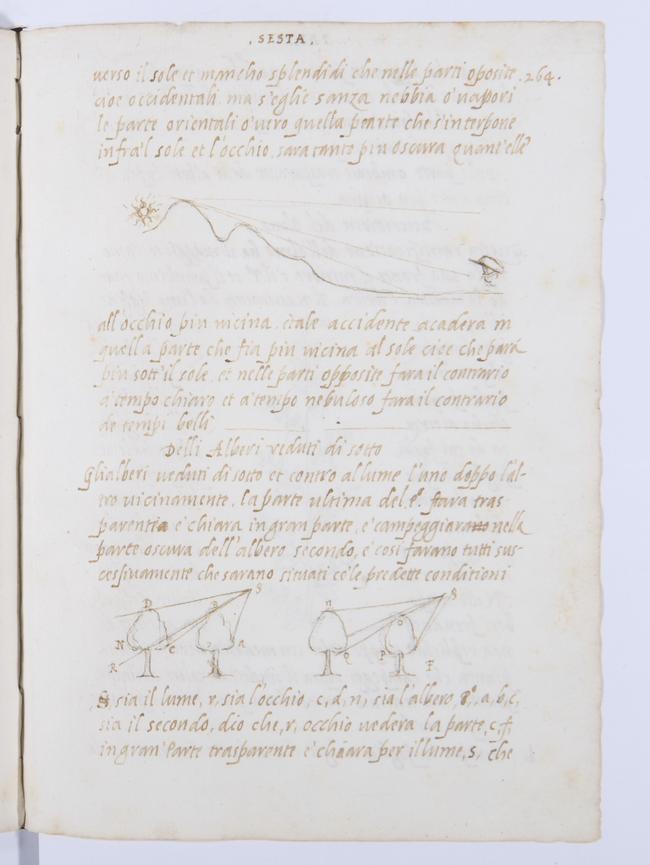 . SESTA .
verso il sole et mancho splendidi che nelle parti oposite . 264 .
cioe occidentali ma s'eglie sanza nebbia o' vapori
le parte orientali o' vero quella pearte che s'interpone
infra'l sole et l'occhio, sara tanto piu oscura quant'ell'e
all'occhio piu vicina. e tale accidente acadera in
quella parte che fia piu vicina al sole cioe che para
piu sott'il sole, et nelle parti opposite fara il contrario
a' tempo chiaro et a' tempo nebuloso fara il contrario
de tempi belli
Delli Alberi veduti di sotto
Glialberi veduti di sotto et contro al lume l'uno doppo l'al-
tro vicinamente, la parte ultima del p.º stara tras
parente e' chiara in gran parte, e' campeggiara nella
parte oscura dell'albero secondo, e' cosi farano tutti suc-
cessivamente che sarano situati co'le predette conditioni
S
D B
N C A
R
S
n o
Q P
F
S sia il lume, r, sia l'occhio, c, d, n, sia l'albero p.º, a, b, c,
sia il secondo, dico che, r, occhio vedera la parte, c, f,
in gran Parte trasparente e' chiara per il lume, s, che